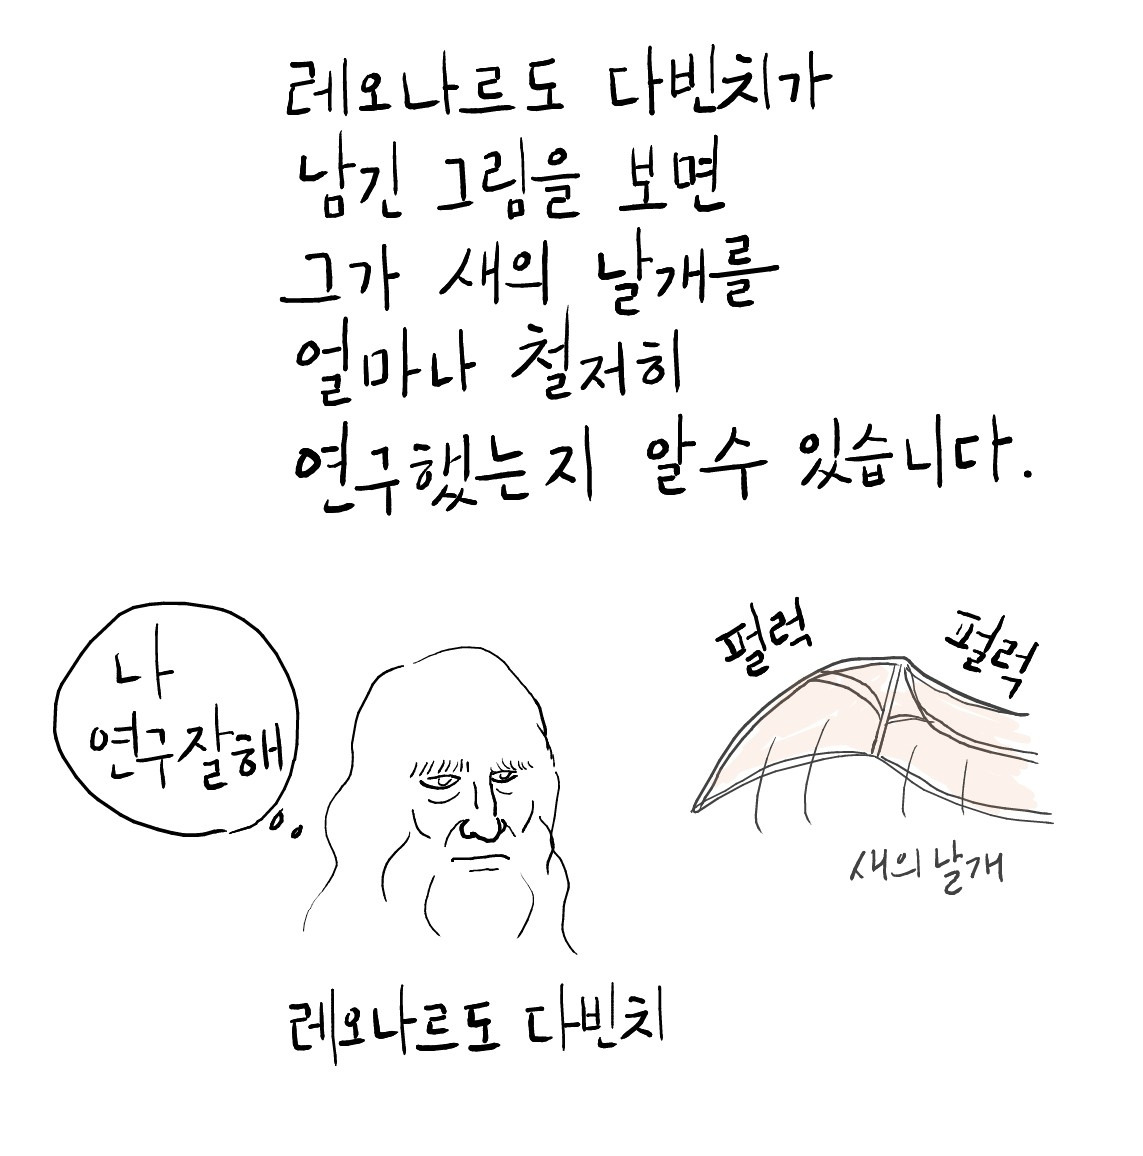 레오나르도 다빈치가
남긴 그림을 보면
그가 새의 날개를
얼마나 철저히
연구했는지 알수 있습니다.
나
연구잘해
펄럭
펄럭
새의 날개
레오나르도 다빈치